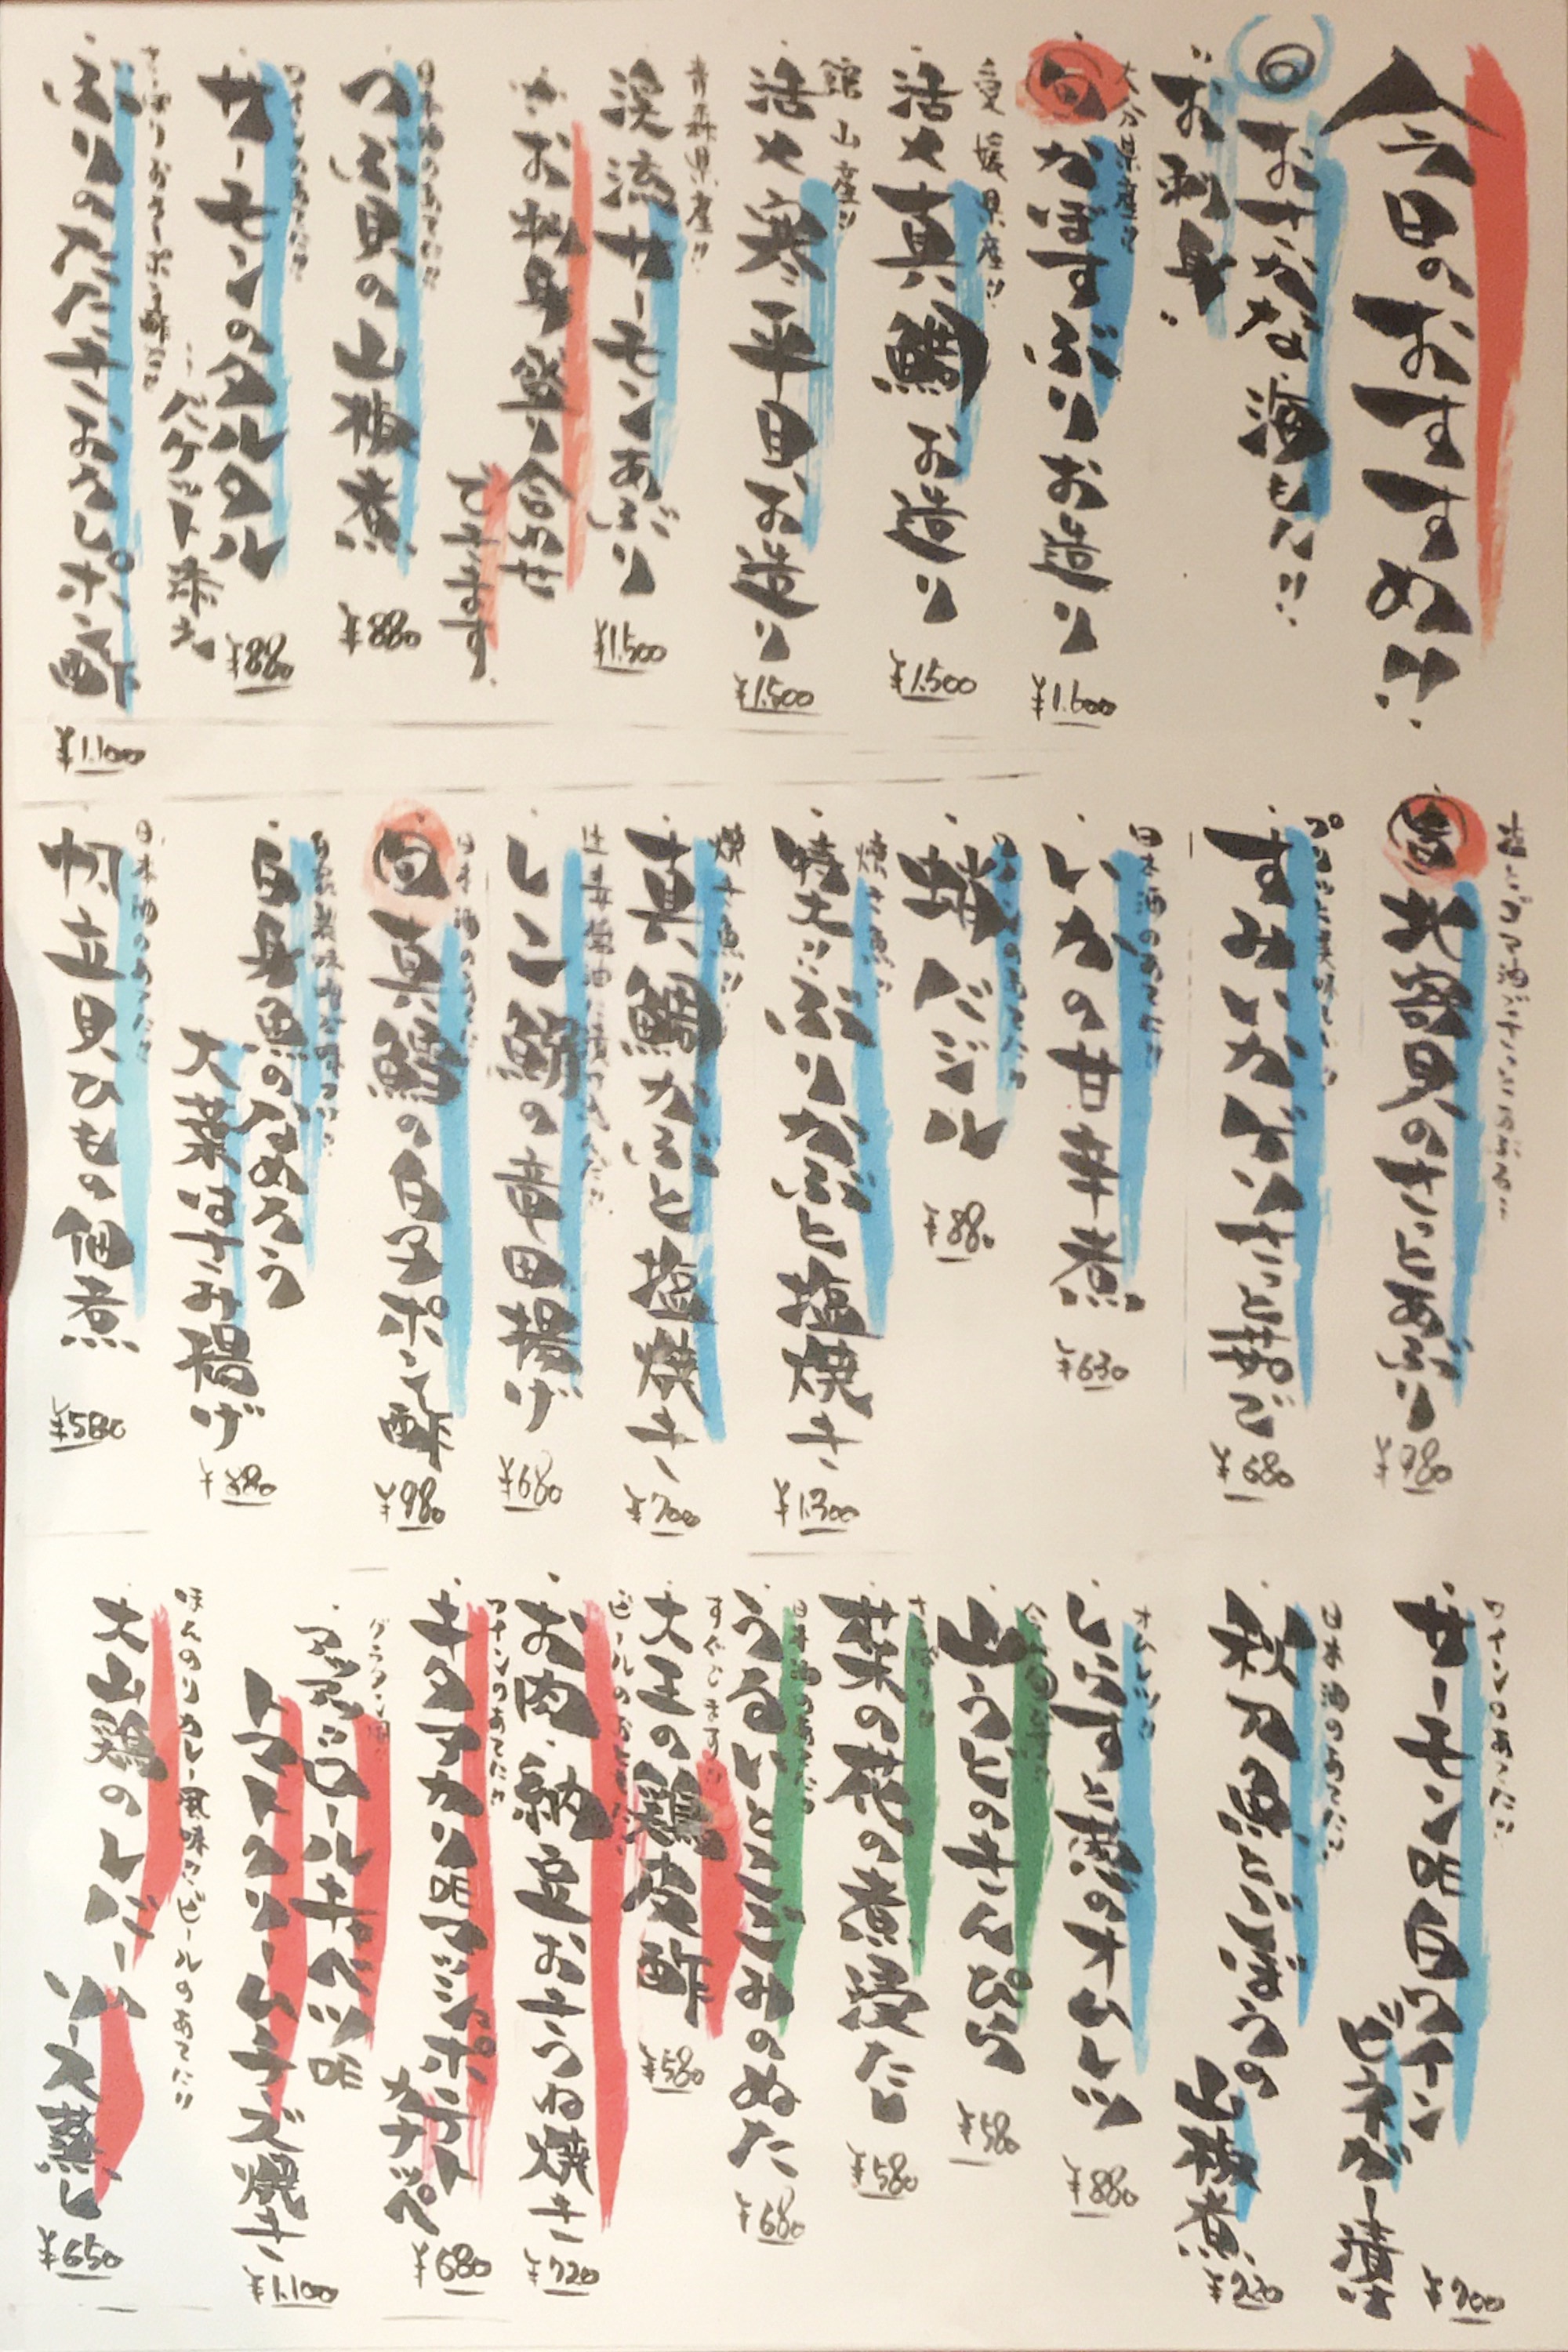 今日のおすすめ!!
おさかな海も!!
お刺身
大分県産!!
旬 かぼすぶりお造り
¥1.600
愛媛県産!!
活〆真鯛お造り
¥1.500
館山産!!
活〆寒平目お造り
¥1.500
青森県産!!
渓流サーモンあぶり
¥1.500
お刺身盛り合わせ
できます
日本酒のあてに!!
つぶ貝の山椒煮
¥880
ワインのあてに!!
サーモンのタルタル
バケット添え
¥880
ぶりのステーキおろしポン酢
¥1.100
北寄貝のさっとあぶり
¥980
すみいかげそさっと茹で
¥680
日本酒のあてに!!
いかの甘辛煮
¥630
ワインのあてに!!
¥880
焼き魚!!
特大!!ぶりかぶと塩焼き
¥1.300
焼き魚!!
真鯛かぶと塩焼き
¥700
レンコ鯛の竜田揚げ
¥680
日本酒のあてに!!
旬 真鱈の白子ポン酢
¥980
白身魚のなめろう
大葉はさみ揚げ
¥880
日本酒のあてに!!
帆立貝ひもの佃煮
¥580
ワインのあてに!!
サーモンの白ワイン
ビネガー漬け
¥700
日本酒のあてに!!
秋刀魚とごぼうの
山椒煮
¥720
オムレツ!!
しらすと海苔のオムレツ
¥880
山うどのきんぴら
¥580
菜の花の煮浸たし
¥580
日本酒のあてに!!
うるいとこごみのぬた
¥680
すぐでます!!
大王の鶏皮酢
¥580
お肉、納豆おきつね焼き
¥720
ワインのあてに!!
キタアカリのアンポテト
カナッペ
¥680
グラタン風
マッシュロールキャベツの
トマトクリームチーズ焼き
¥1.100
ほんのりカレー風味!!ビールのあてに!!
大山鶏のレバー
ソース蒸し
¥650